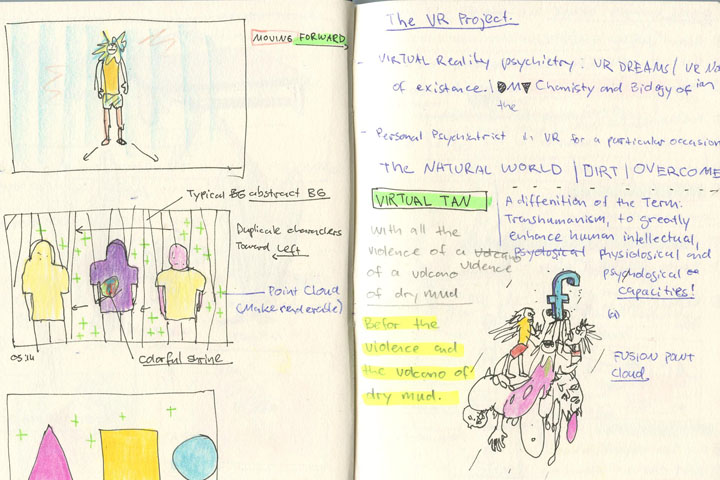 MOVING FORWARD
Typical BG abstract BG
Duplicate characters
Toward Left
Point Cloud
(Make renderable)
05:14
colorful shrine
The VR Project.
- VIRTUAL Reality psychietry: VR DREAMS/ VR
of existence. / DMT Chamistry and Biology of
the
- Personal Psychiatrict in VR for a particular occasion
The NATURAL WORLD | DIRT | OVERCOME
VIRTUAL TAN
A diffenition of the Term.
Transhumanism, to greatly
enhance human intellectual,
psychological physiological and
psychological
capacities!
With all the
violence of a volcano
violence
of a volcano
of dry mud
f
Befor the
violence and
the volcano of
dry mud.
FUSION POINT
CLOUD